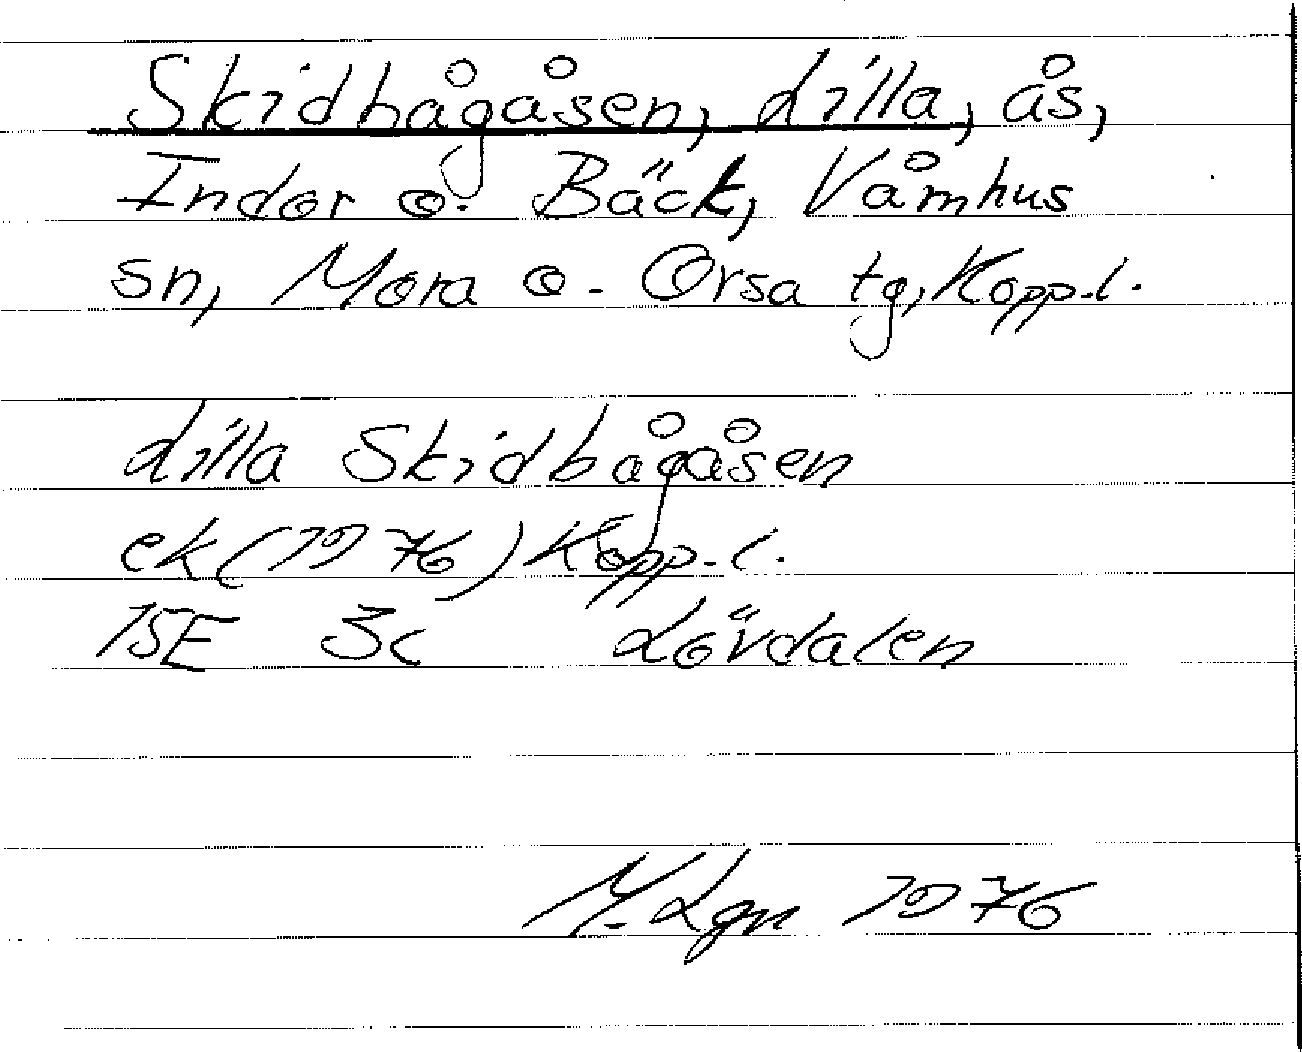 Skidbågåsen, Lilla, ås,
Indor o. Bäck, Våmhus
sn, Mora o. Orsa tg, Kopp.l.
Lilla Skidbågåsen
ek (1976) Kopp.l.
15E 3c Lövdalen
M. Lgn 1976